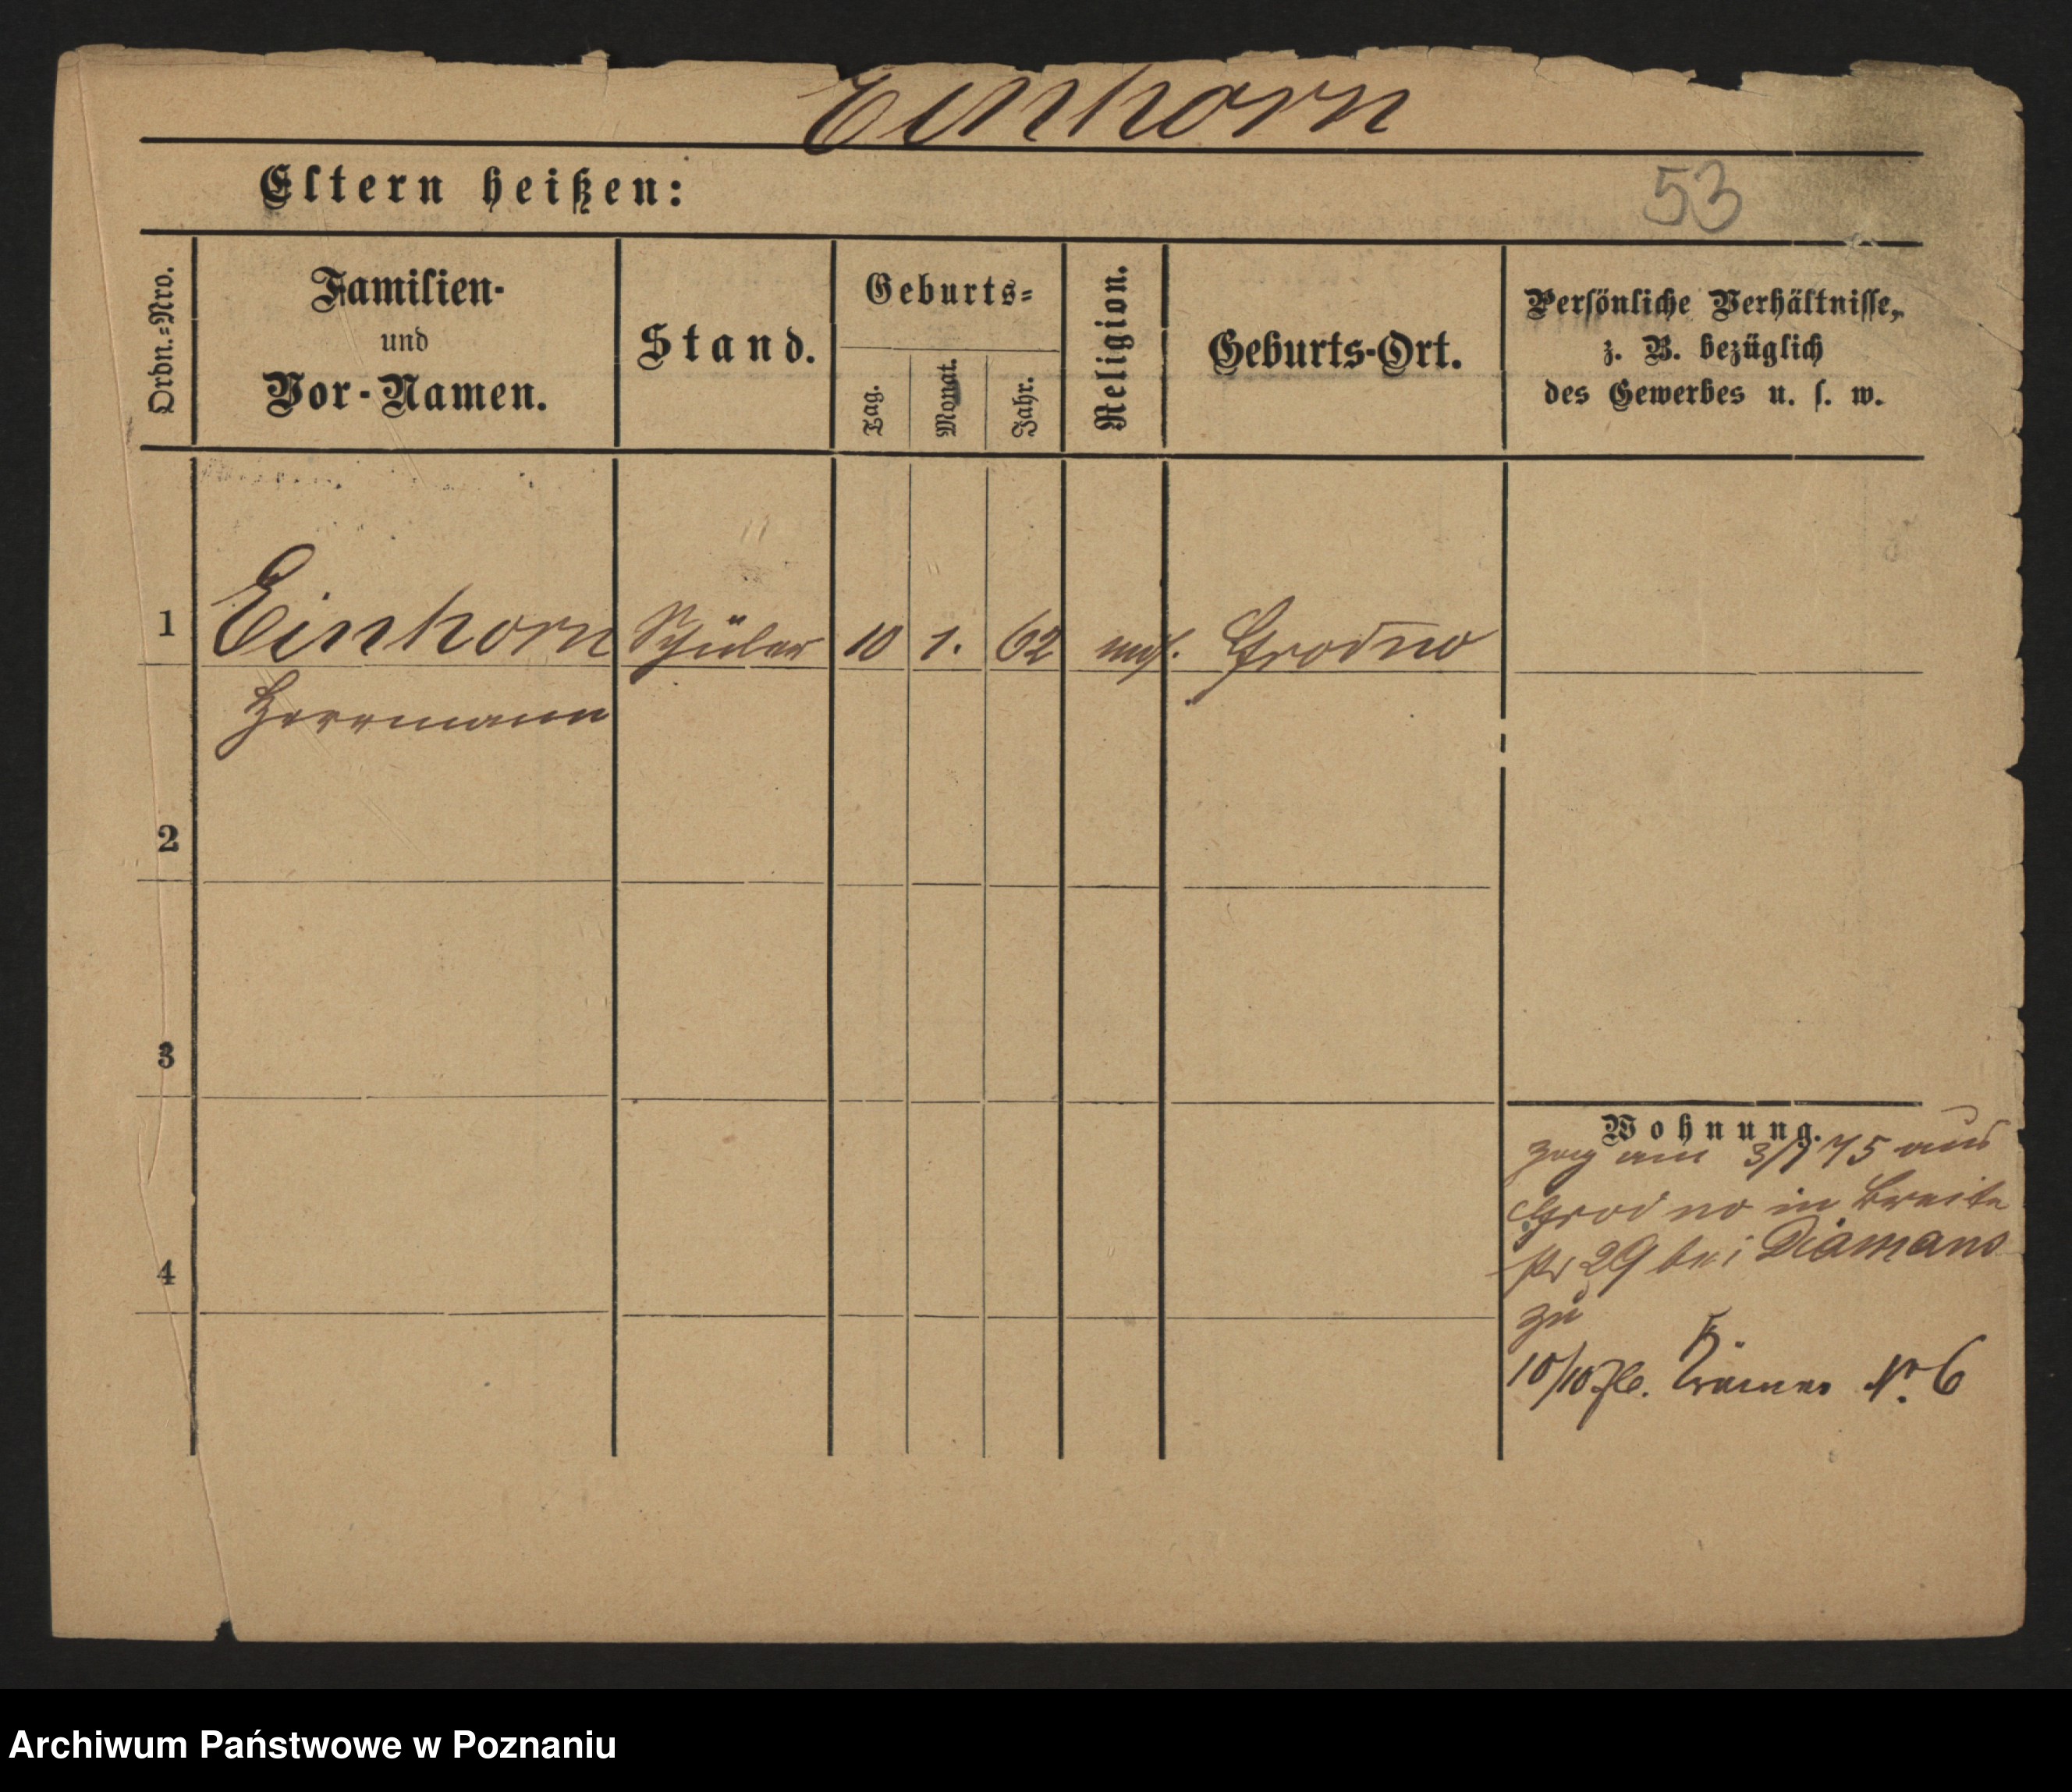 Einhorn
Eltern heißen:
53
Ordn.=Nro.
Familien-
und
Vor-Namen.
Stand.
Geburts=
Tag.
Monat.
Jahr.
Religion.
Geburts-Ort.
Persönliche Verhältnisse,
z. B. bezüglich
des Gewerbes u. s. w.
1
Einhorn Schüler 10 1. 62 mos. Grodno
Herrmann
2
3
4
Wohnung.
zog am 75 aus
Grodno in Breite
str 29 bei Diamand
zu
10/10 76. Krämer Nr. 6
Archiwum Państwowe w Poznaniu